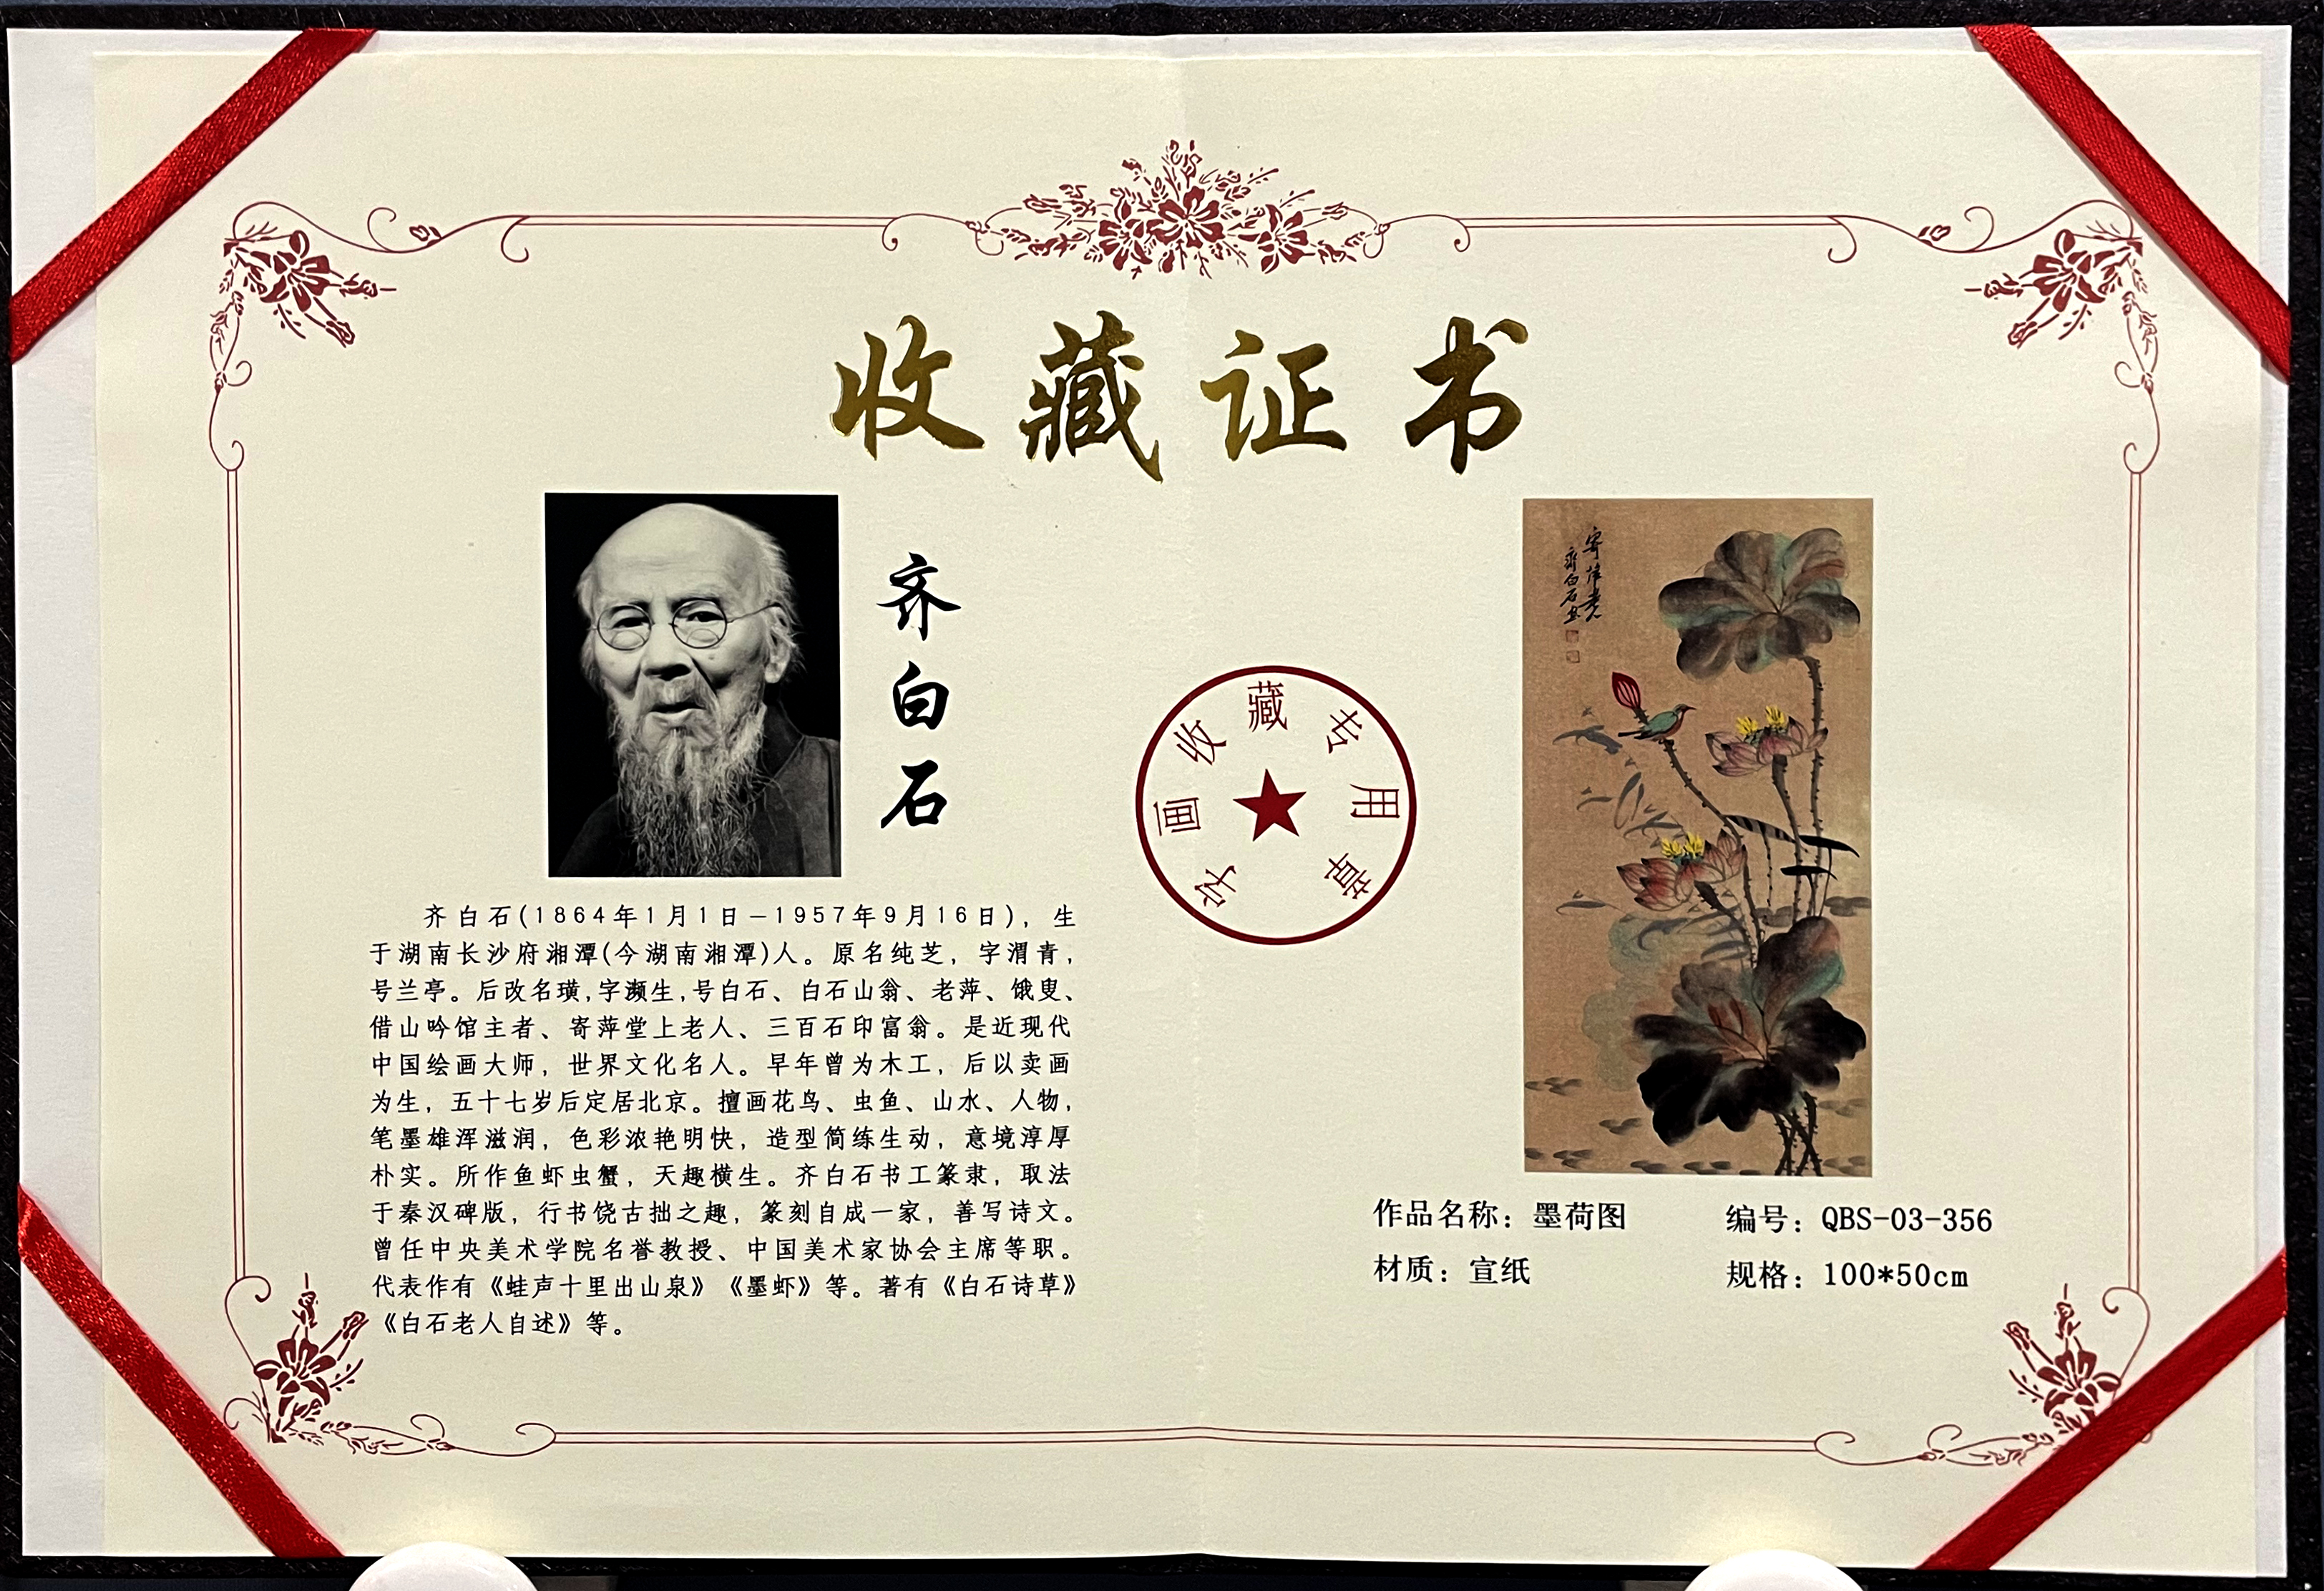 收藏证书
齐白石
齐白石(1864年1月1日—1957年9月16日)，生
于湖南长沙府湘潭(今湖南湘潭)人。原名纯芝，字渭青，
号兰亭。后改名璜,字濒生,号白石、白石山翁、老萍、饿叟、
借山吟馆主者、寄萍堂上老人、三百石印富翁。是近现代
中国绘画大师，世界文化名人。早年曾为木工，后以卖画
为生，五十七岁后定居北京。擅画花鸟、虫鱼、山水、人物，
笔墨雄浑滋润，色彩浓艳明快，造型简练生动，意境淳厚
朴实。所作鱼虾虫蟹，天趣横生。齐白石书工篆隶，取法
于秦汉碑版，行书饶古拙之趣，篆刻自成一家，善写诗文。
曾任中央美术学院名誉教授、中国美术家协会主席等职。
代表作有《蛙声十里出山泉》《墨虾》等。著有《白石诗草》
《白石老人自述》等。
字画收藏专用章
寄萍堂
齐白石
作品名称：墨荷图
编号：QBS-03-356
材质：宣纸
规格：100*50cm